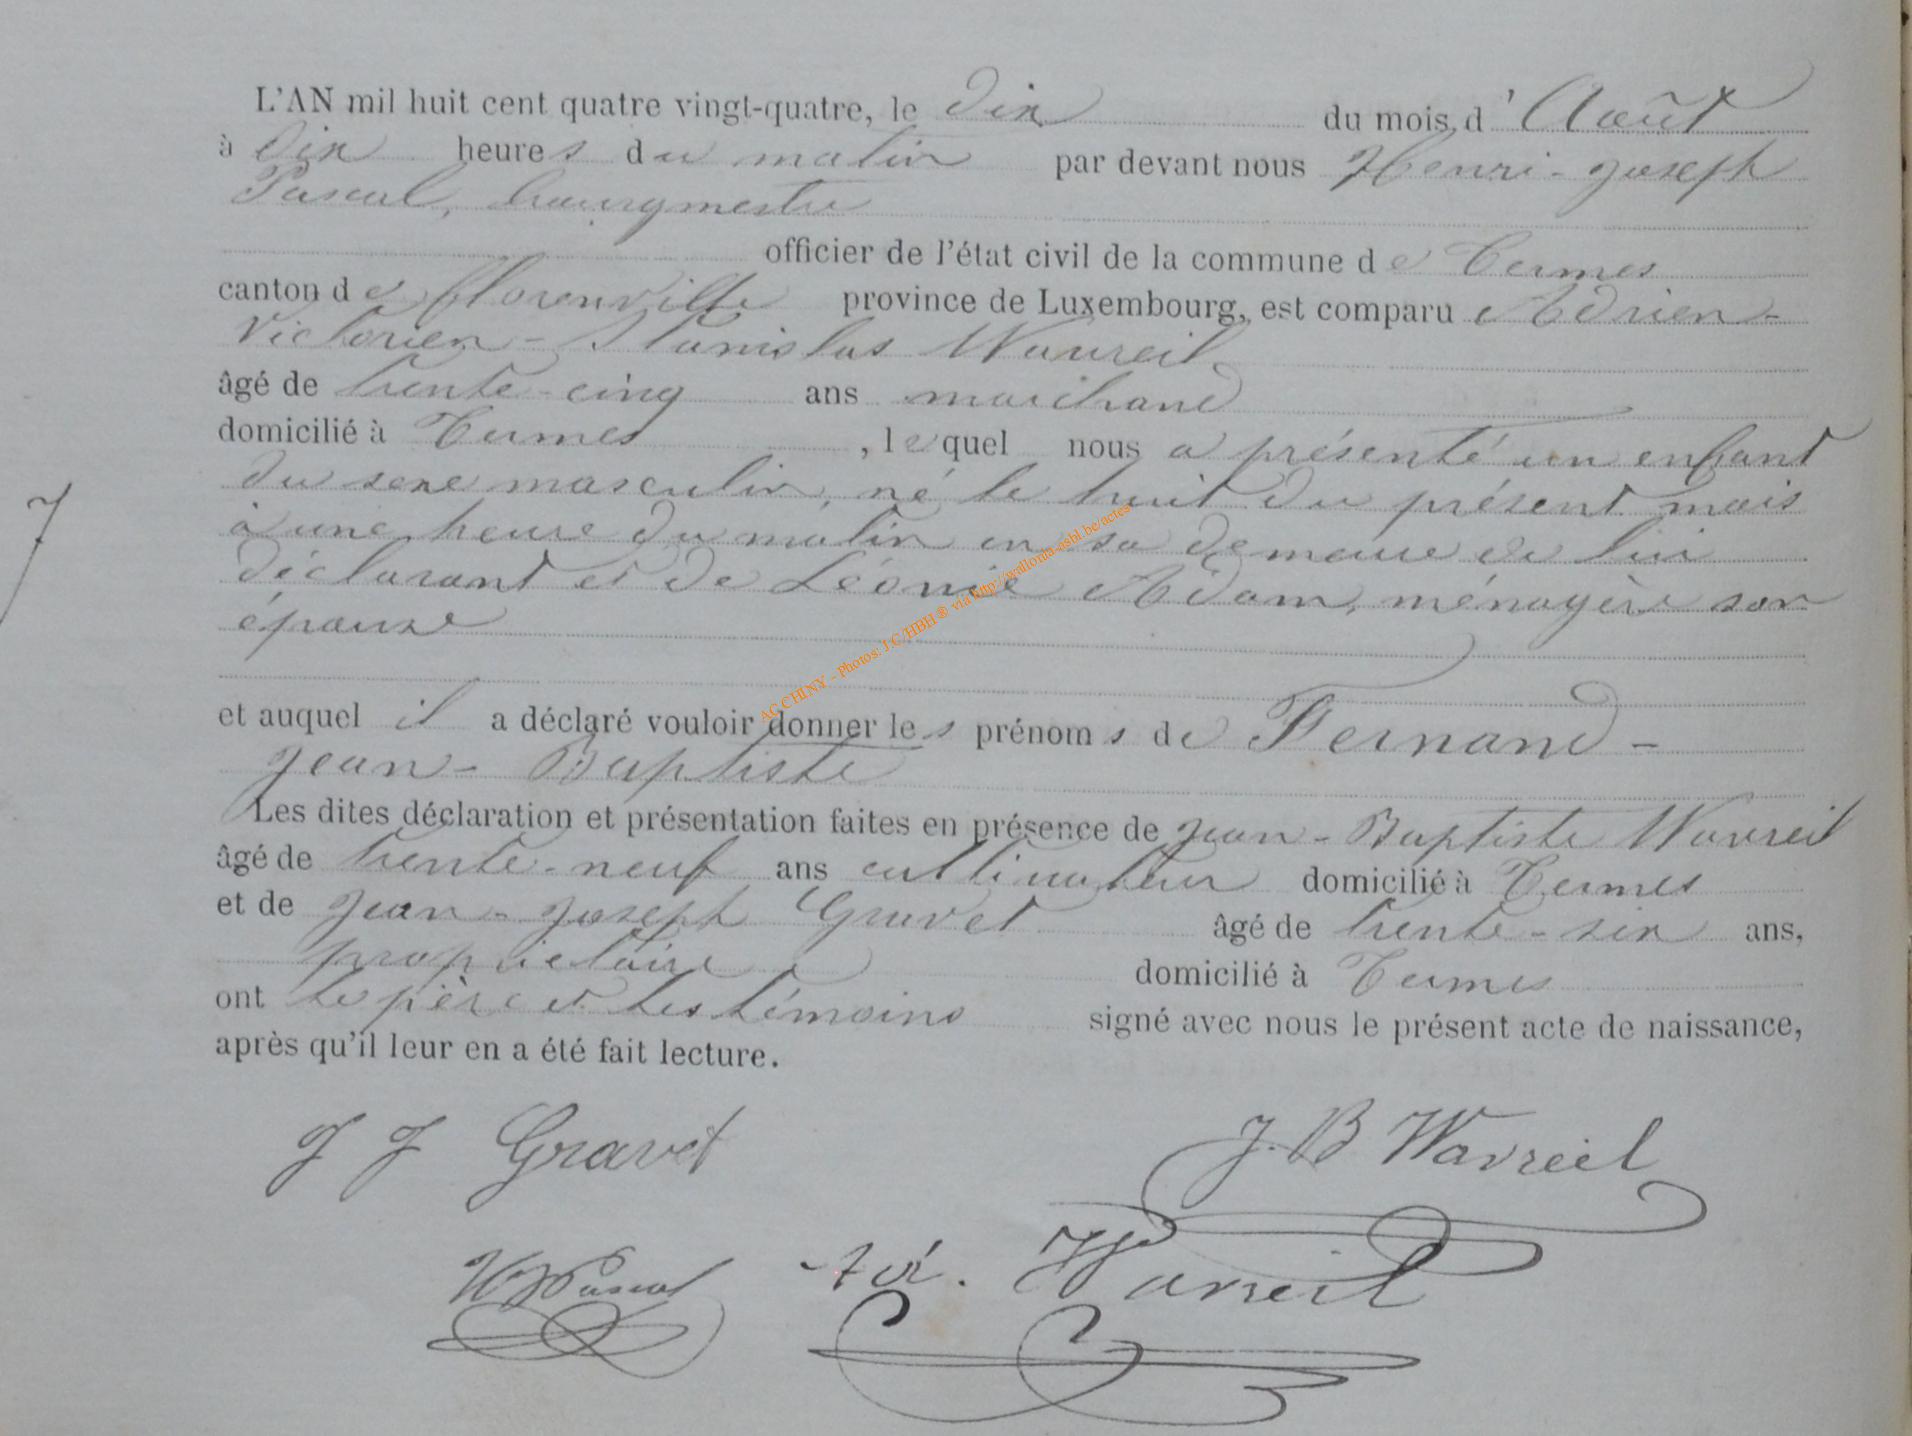 L'AN mil huit cent quatre vingt-quatre, le dix du mois d'Août
à dix heures du matin par devant nous Henri-Joseph
Pascal, bourgmestre
officier de l'état civil de la commune de Termes
canton de Florenville province de Luxembourg, est comparu Adrien-
Victorien-Stanislas Wavreil
âgé de trente-cinq ans marchand
domicilié à Termes, lequel nous a présenté un enfant
du sexe masculin, né le huit du présent mois
à une heure du matin en sa demeure de lui
déclarant et de Léonie Adam, ménagère son
épouse
et auquel il a déclaré vouloir donner les prénoms de Fernand-
Jean-Baptiste
Les dites déclaration et présentation faites en présence de Jean-Baptiste Wavreil
âgé de trente-neuf ans cultivateur domicilié à Termes
et de Jean-Joseph Gravet âgé de trente-six ans,
propriétaire domicilié à Termes
ont le père et les témoins signé avec nous le présent acte de naissance,
après qu'il leur en a été fait lecture.
J J Gravet J. B Wavreil
HJPascal Ad. Wavreil
7
AC CHINY - Photos: J.C/HBH ® via http://wallonia-asbl.be/actes